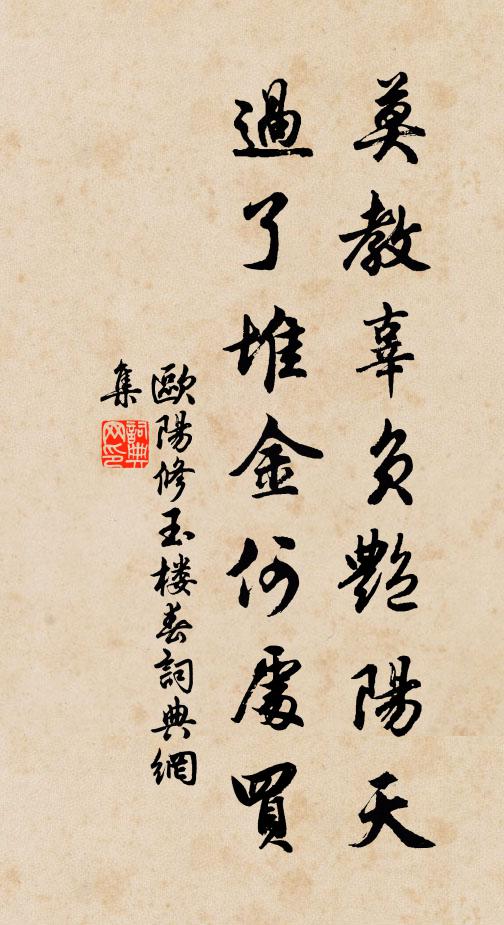 莫教辜负艷陽天
過了堆金何處買
歐陽修玉楼春詞典網
集
詞典网印